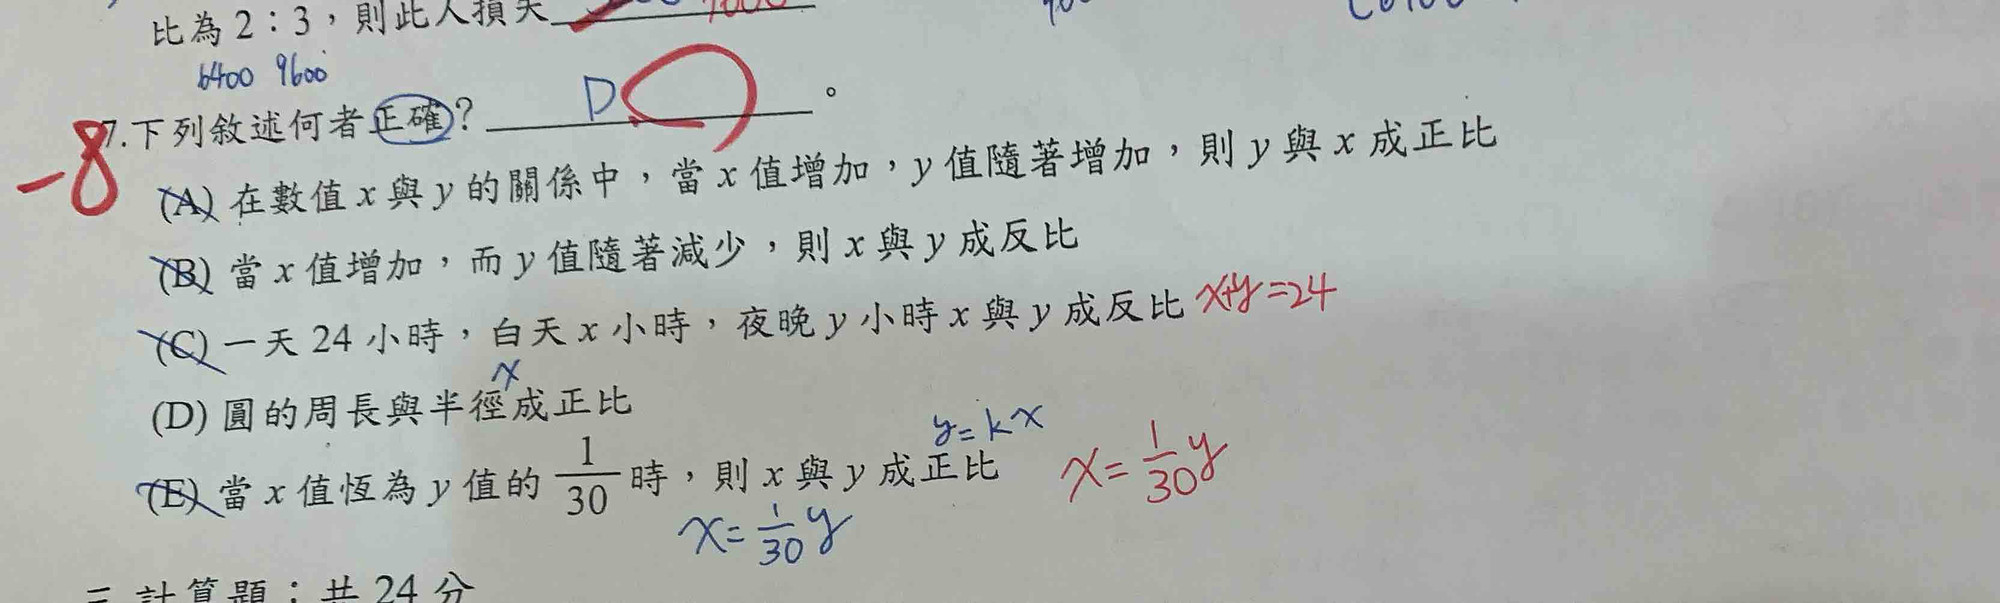 比為 2：3，則此人損失
6400 9600
-8
7.下列敘述何者正確？ D 。
(A) 在數值 x 與 y 的關係中，當 x 值增加，y 值隨著增加，則 y 與 x 成正比
(B) 當 x 值增加，而 y 值隨著減少，則 x 與 y 成反比
(C) 一天 24 小時，白天 x 小時，夜晚 y 小時 x 與 y 成反比 x+y=24
x
(D) 圓的周長與半徑成正比
y=kx
(E) 當 x 值恆為 y 值的 1/30 時，則 x 與 y 成正比 x=1/30y
x=1/30y
三 計算題：共 24 分